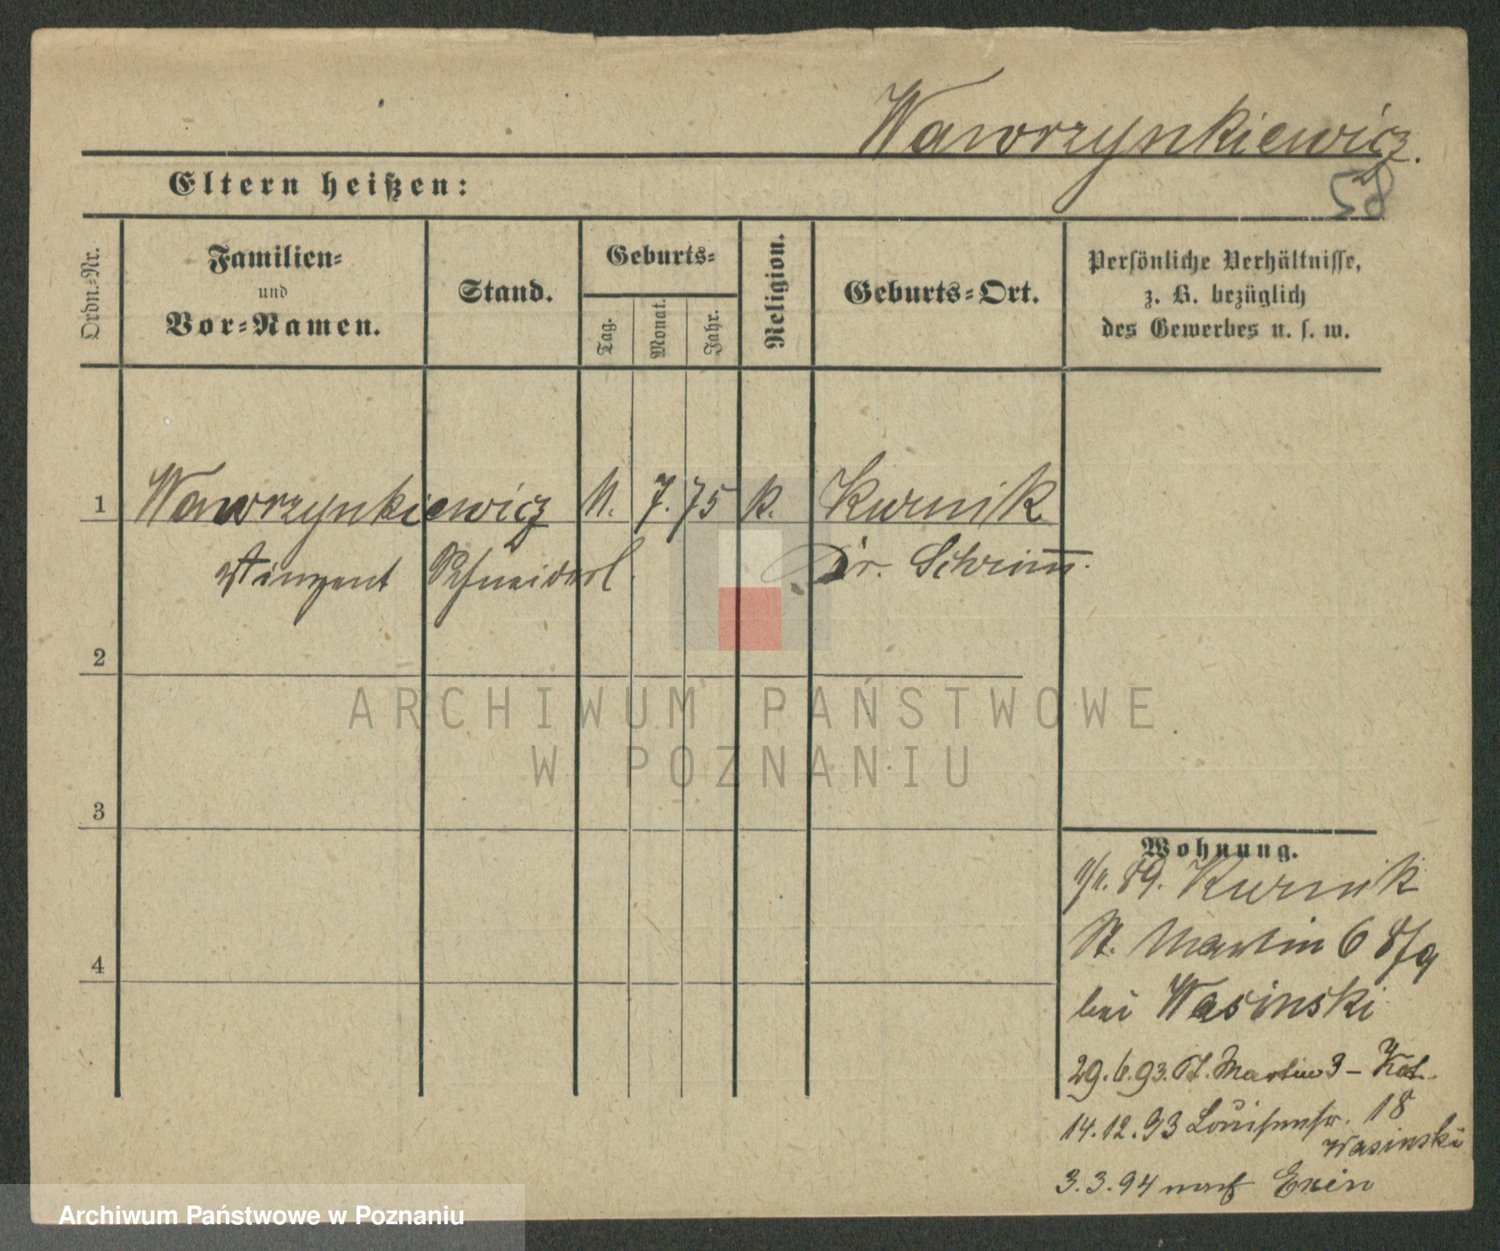 Wawrzynkiewicz.
58
Eltern heißen:
Ordn.-Nr.
Familien-
und
Vor-Namen.
Stand.
Geburts-
Tag.
Monat.
Jahr.
Religion.
Geburts-Ort.
Persönliche Verhältnisse,
z. B. bezüglich
des Gewerbes u. s. w.
1 Wawrzynkiewicz 7. 75 k. Kurnik
Vinzent Schneiderl. Kr. Schrimm.
2
3
4
Wohnung.
89. Kurnik
St. Martin 6 8/9
bei Wasinski
29.6.93. St. Martin 3 -
14.12.93 Louisenstr. 18
Wasinski
3.3.94 nach Exin
ARCHIWUM PAŃSTWOWE
W POZNANIU
Archiwum Państwowe w Poznaniu